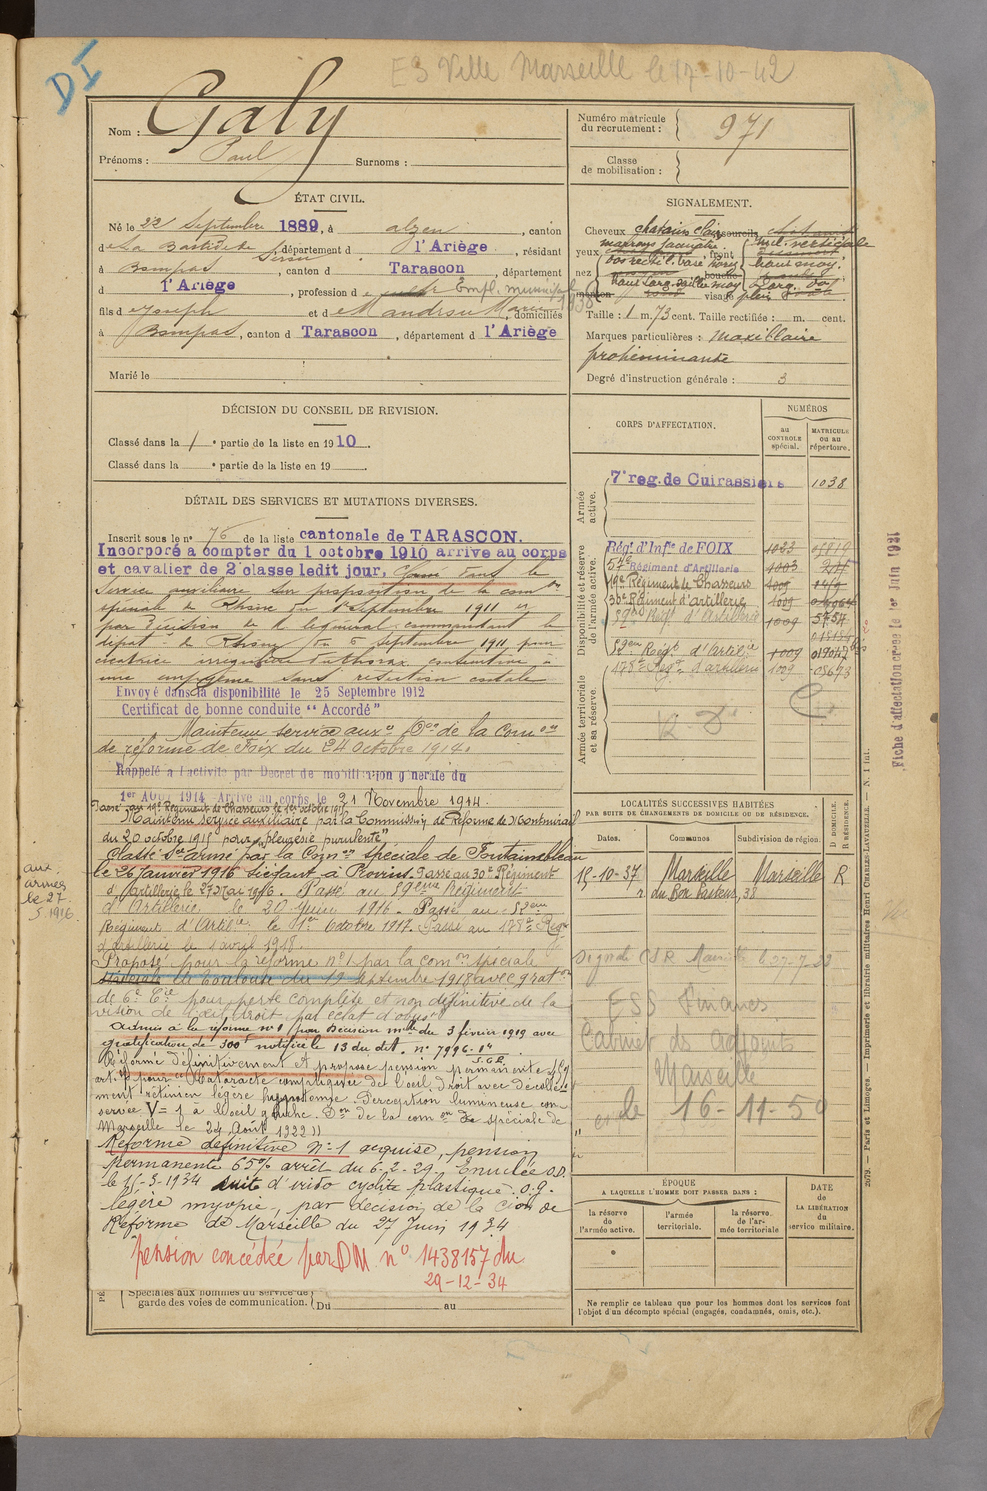 DI
ES Ville Marseille le 17-10-42
Nom : Galy
Prénoms : Paul Surnoms :
ÉTAT CIVIL.
Né le 22 Septembre 1889, à alzen, canton
de La Bastide de Sérou, département d l'Ariège, résidant
à Bompas, canton d Tarascon, département
d l'Ariège, profession d Empl. municipal
1938
fils de Joseph et de Mandrou Marie, domiciliés
à Bompas, canton d Tarascon, département d l'Ariège
Marié le
DÉCISION DU CONSEIL DE REVISION.
Classé dans la 1e partie de la liste en 1910.
Classé dans la e partie de la liste en 19
DÉTAIL DES SERVICES ET MUTATIONS DIVERSES.
Inscrit sous le no 76 de la liste cantonale de TARASCON.
Incorporé a compter du 1 octobre 1910 arrive au corps
et cavalier de 2e classe ledit jour, Classé dans le
service auxiliaire sur proposition de la com on
spéciale de Reims du 1er Septembre 1911 et
par décision de M le général commandant le
départ t de Reims du 5 Septembre 1911 pour
cicatrice irrégulière du thorax consécutive à
une empyème sans résection costale
Envoyé dans la disponibilité le 25 Septembre 1912
Certificat de bonne conduite "Accordé"
Maintenu service aux e Don de la Com on
de réforme de Foix du 24 octobre 1914.
Rappelé a l'activité par Decret de mobilisation générale du
1er Août 1914 Arrivé au corps le 21 Novembre 1914.
Passé au 19e Régiment de Chasseurs le 1er octobre 1915
Maintenu service auxiliaire par la Commission de Réforme de Montmirail
du 20 octobre 1915 pour "pleurésie purulente"
Classé Sce armé par la Com on spéciale de Fontainebleau
le 26 janvier 1916 siégeant à Provins. Passé au 30e Régiment
d'Artillerie le 27 Mai 1916. Passé au 59ème Régiment
d'Artillerie le 20 Juin 1916 - Passé au 82em
Régiment d'Artil ie le 1er Octobre 1917. Passé au 178e Reg t
d'Artillerie le 1 avril 1918.
Proposé pour la réforme no 1 par la com on spéciale
de Toulouse du 19 septembre 1918 avec grat on
de 6e C ie pour perte complète et non définitive de la
vision de l'oeil droit par éclat d'obus
Admis à la réforme no 1 par Décision m lle du 3 février 1919 avec
gratification de 300f notifiée le 13 du dit. no 7996-1er
S.G.P.
Réformé définitivement et proposé pension permanente 65%
pour "Cataracte compliquée de l'oeil droit avec décolle-
ment rétinien légère hypotonie. Perception lumineuse con-
servée V = 1 à l'oeil gauche. D on de la com on de spéciale de
Marseille le 24 Août 1922"
Réforme définitive No 1 acquise, pension
permanente 65% arrêt du 6-2-29. Enuclée O.D.
le 15-3-1934 suite d'irido cyclite plastique. O.g.
légère myopie, par décision de la Cion de
Réforme de Marseille du 27 Juin 1934
pension concédée par DM no 1438157 du
29-12-34
Spéciales aux hommes du service de
garde des voies de communication. Du au
aux
armées
le 27
5.1916
Numéro matricule
du recrutement : 971
Classe
de mobilisation :
SIGNALEMENT.
Cheveux chatain clair sourcils
yeux marrons jaunatre, front mil. verticale haut moy.
nez dos rectil. base horiz haut. larg. saillie moy bouche
menton visage plein
Taille : 1 m. 73 cent. Taille rectifiée : m. cent.
Marques particulières : maxillaire
proéminante
Degré d'instruction générale : 3
CORPS D'AFFECTATION.
NUMÉROS
au CONTROLE spécial.
MATRICULE ou au répertoire.
Armée active.
7e reg. de Cuirassiers 1038
Disponibilité et réserve de l'armée active.
Rég t d'Inf ie de FOIX 1023
57e Régiment d'Artillerie 1003
19e Régiment de Chasseurs 1009
30e Régiment d'artillerie 1009
59e Reg t d'Artillerie 1009 5754
82em Reg t d'Artil ie 1009
178e Reg t d'artillerie 1009
Armée territoriale et sa réserve.
LOCALITÉS SUCCESSIVES HABITÉES
PAR SUITE DE CHANGEMENTS DE DOMICILE OU DE RÉSIDENCE.
Dates. Communes Subdivision de région. D DOMICILE. R RÉSIDENCE.
15-10-37 Marseille Marseille R
r. du Bon Pasteur, 38
ESS Finances
Cabinet des adjoints
Marseille
le 16-11-50
ÉPOQUE
A LAQUELLE L'HOMME DOIT PASSER DANS :
la réserve de l'armée active.
l'armée territoriale.
la réserve de l'armée territoriale
DATE de LA LIBÉRATION du service militaire.
Ne remplir ce tableau que pour les hommes dont les services font
l'objet d'un décompte spécial (engagés, condamnés, omis, etc.).
Fiche d'affectation créée le 1er Juin 1921
2079. — Paris et Limoges. — Imprimerie et librairie militaires Henri CHARLES-LAVAUZELLE. — N. 1 bis.